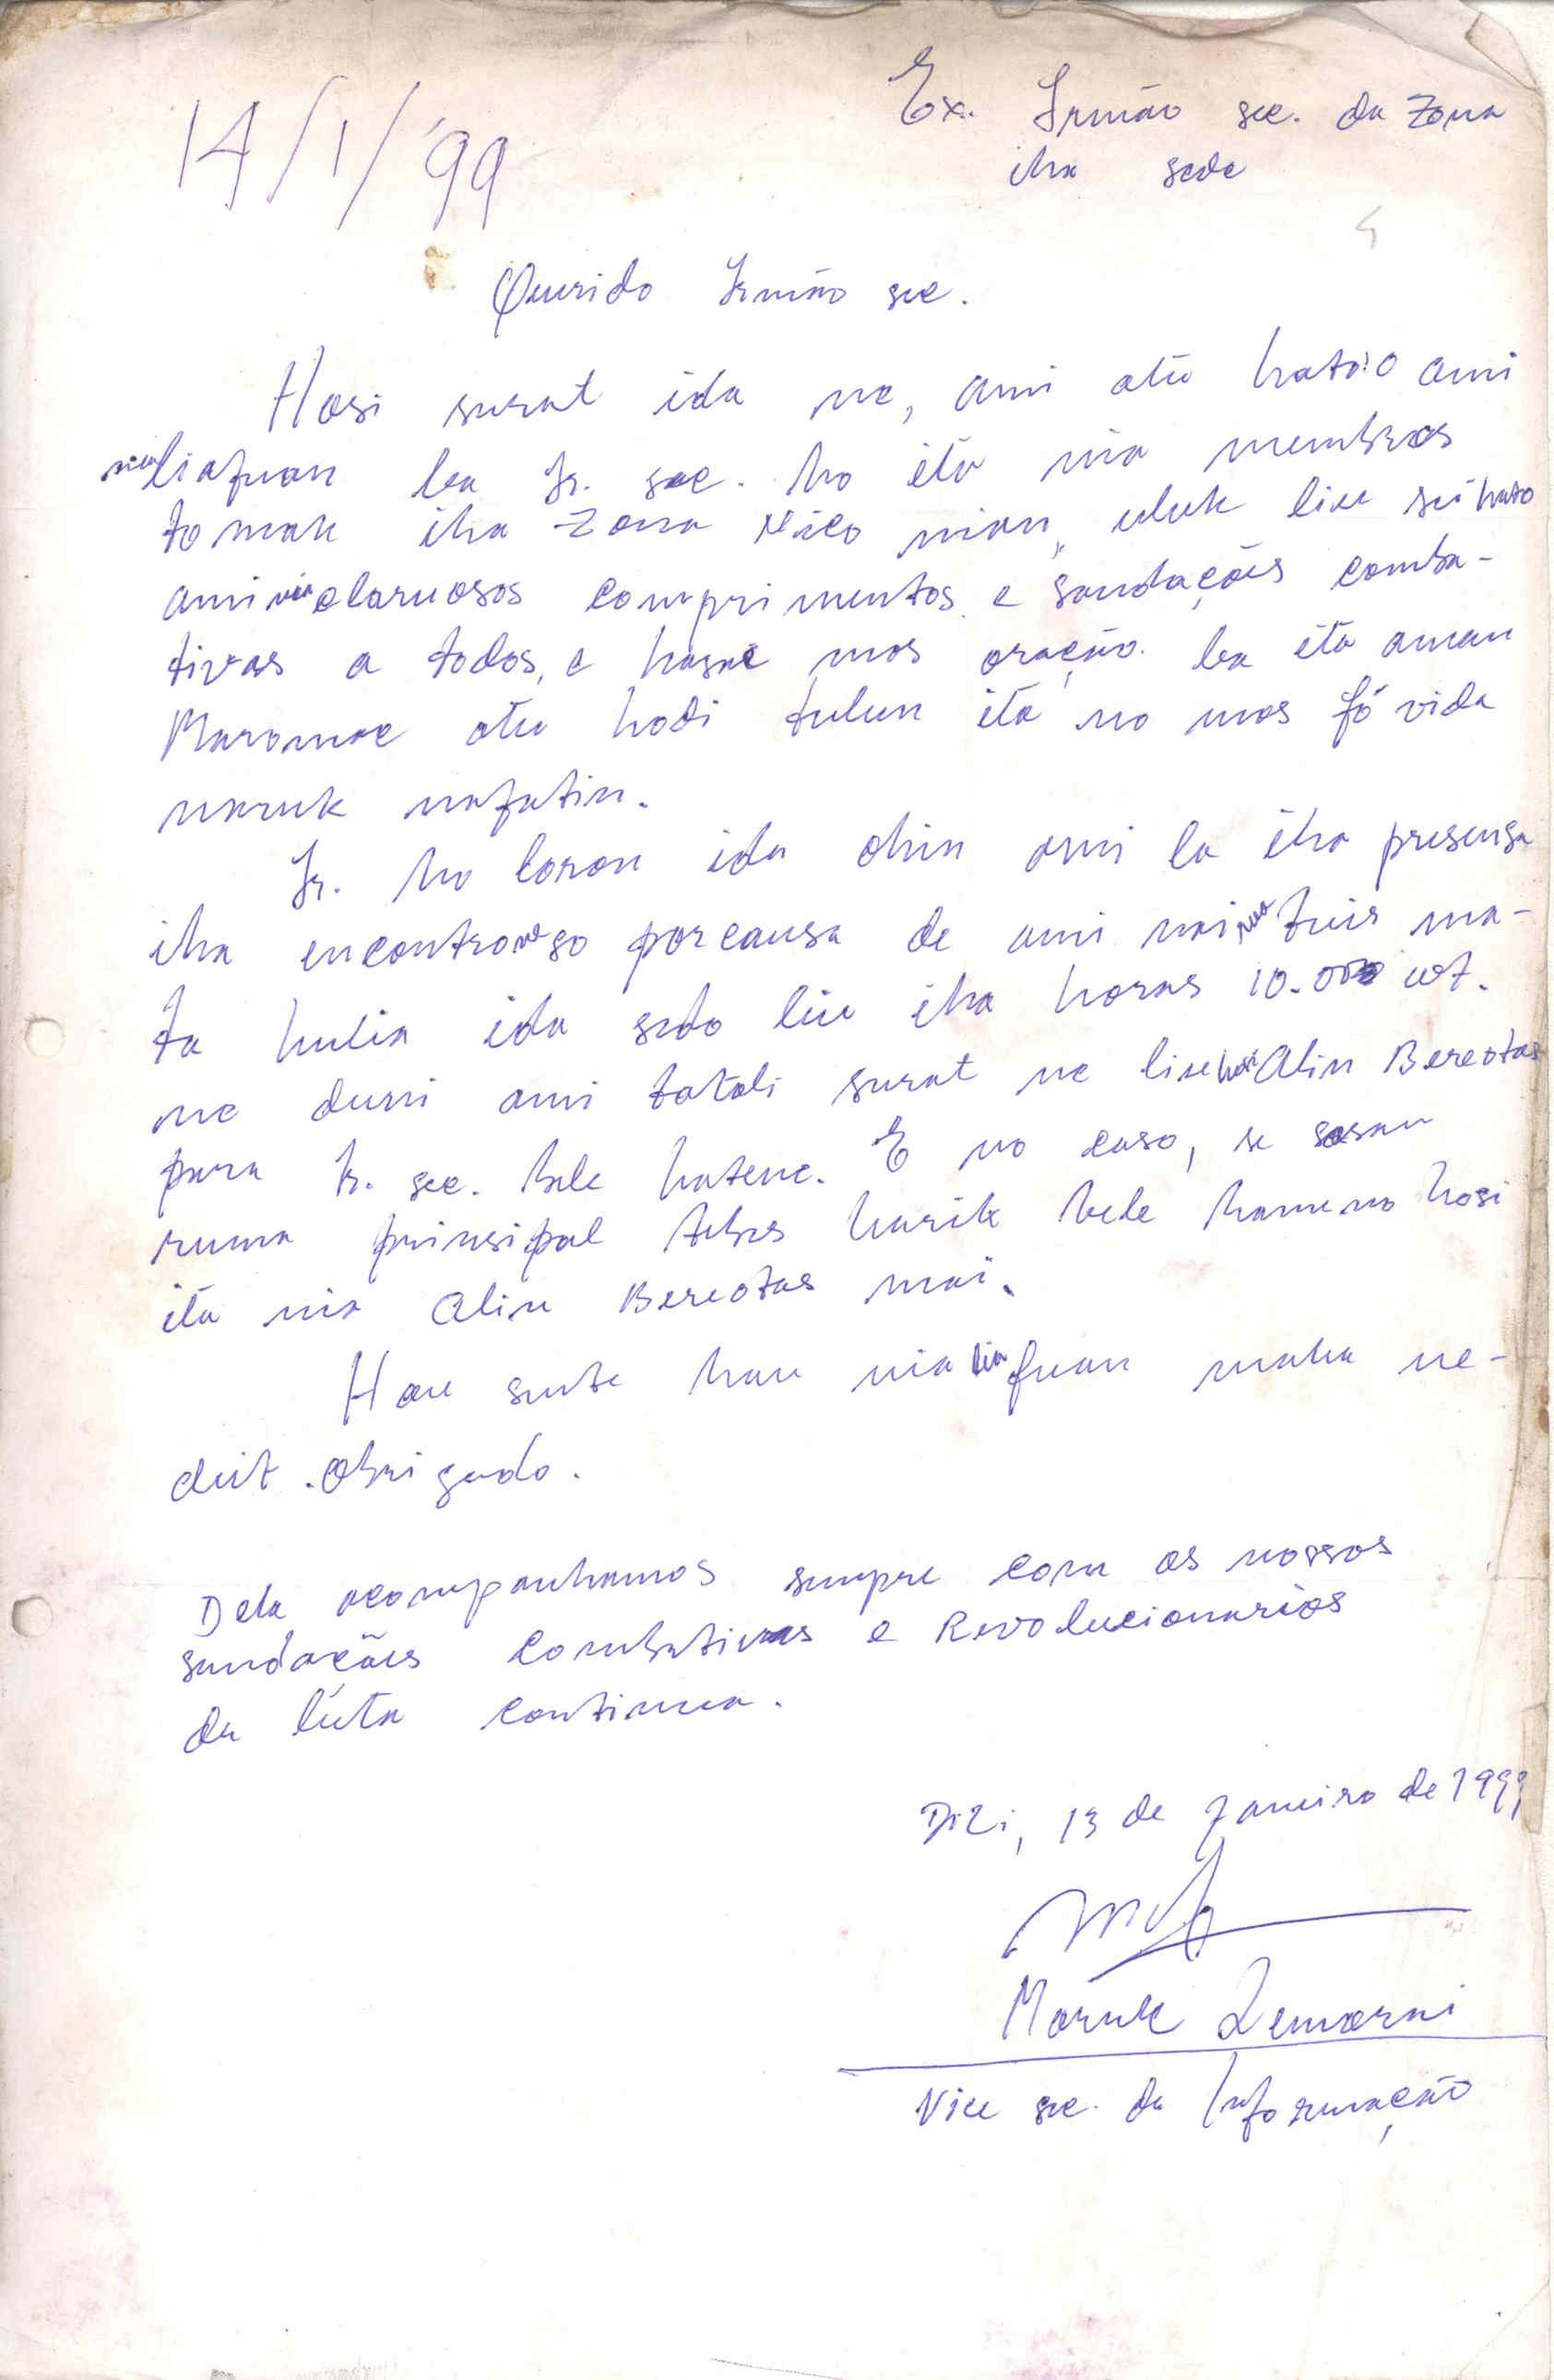 14/1/'99
Ex. Irmão sec. da Zona
iha sede
Querido Irmão sec.
Hosi surat ida ne, ami atu hato'o ami
nia liafuan ba Ir. sec. ho ita nia membros
tomak iha Zona nian, uluk liu sei hato
ami nia claruosos comprimentos e saudações comba-
tivas a todos, e hasae mos oração ba ita aman
Maromac atu hodi tulun ita no mos fó vida
naruk nafatin.
Ir. ho loron ida ohin ami la iha presensa
iha encontro ne so porcausa de ami nai tuir ma-
ta hulia ida sedo liu iha horas 10.00 wt.
ne duni ami tatoli surat ne liu hosi Alin Bereotas
para Ir. sec. bele hatene. E no caso, se sasan
ruma prinsipal tebes karik bele hameno hosi
ita nia Alin Bereotas mai.
Hau sente hau nia liafuan maka ne-
deit. Obrigado.
Dela acompanhamos sempre com os nossos
saudações combativas e Revolucionarios
da luta continua.
Dili, 13 de Janeiro de 1999
Maruk Lemorai
Vice sec. da Informação